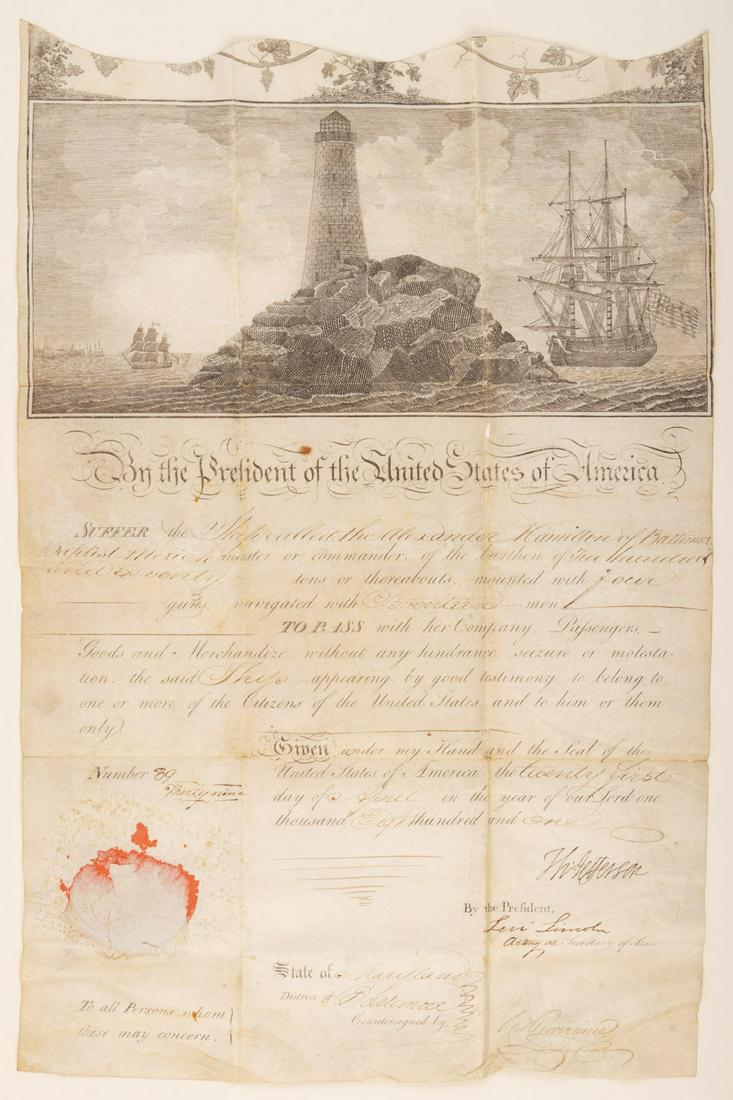 By the President of the United States of America.
SUFFER the Ship called the Alexander Hamilton of Baltimore
Baptist master or commander, of the burthen of Two hundred
and seventy tons or thereabouts, mounted with four
guns, navigated with Seventeen men
TO PASS with her Company, Passengers,
Goods and Merchandize, without any hindrance, seizure or molesta-
tion: the said Ship appearing, by good testimony, to belong to
one or more of the Citizens of the United States, and to him or them
only.
Given under my Hand and the Seal of the
United States of America, the twenty first
day of April in the year of our Lord one
thousand Eight hundred and One
Number 39
Thirty nine
Th: Jefferson
By the President,
Levi Lincoln
Acting as Secretary of State
State of Maryland
District of Baltimore
Countersigned by
To all Persons whom
these may concern.